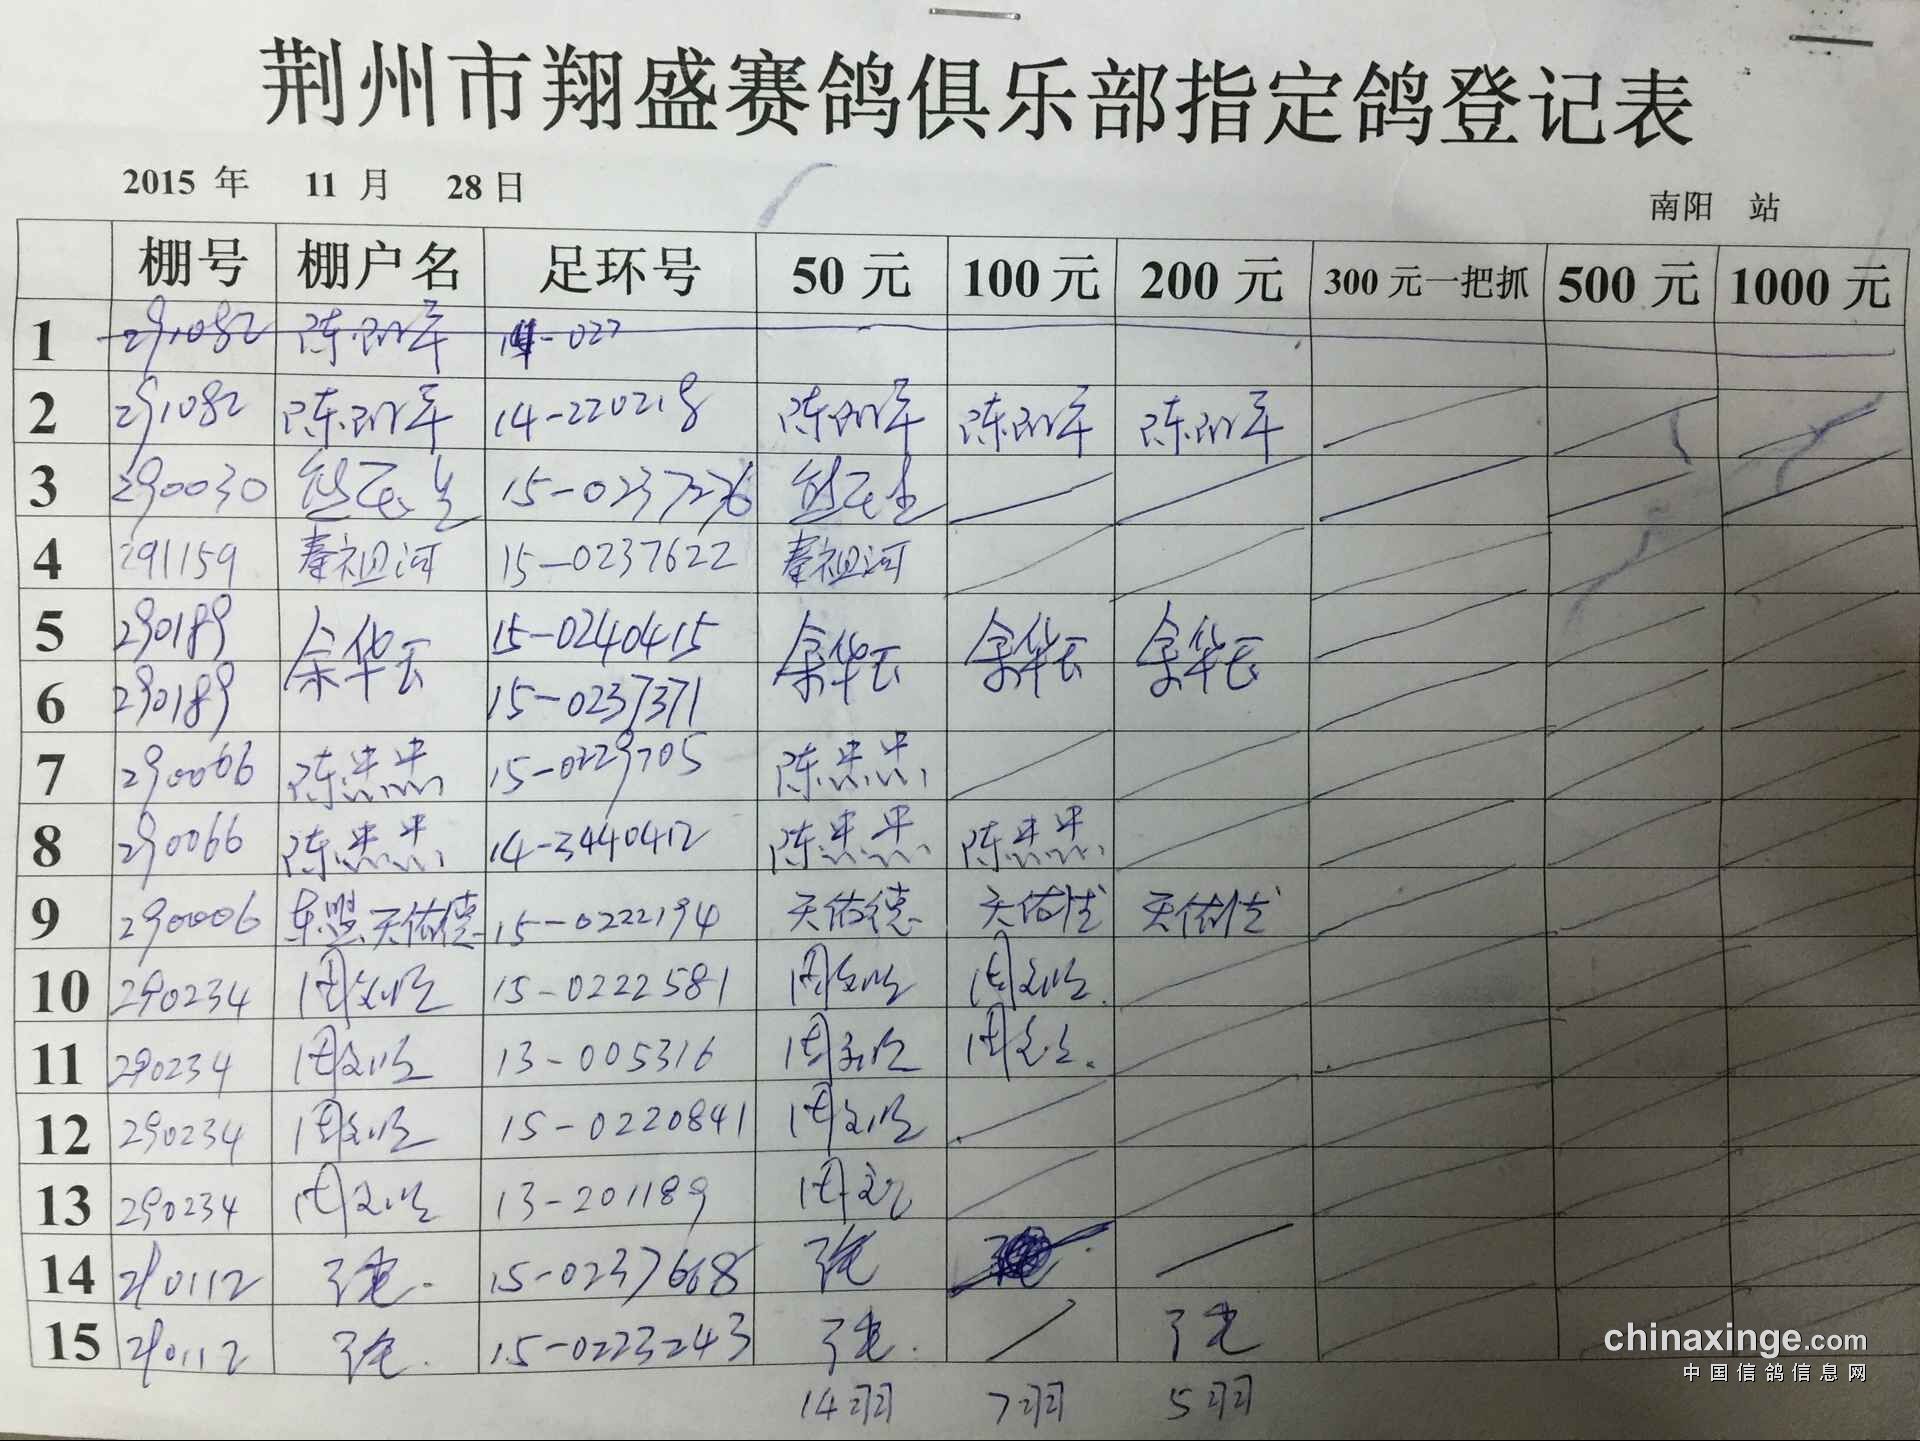 荆州市翔盛赛鸽俱乐部指定鸽登记表
2015 年 11 月 28日 南阳 站
棚号 棚户名 足环号 50 元 100 元 200 元 300 元一把抓 500 元 1000 元
1 291082 陈 军 14-022
2 291082 陈 军 14-220218 陈 军 陈 军 陈 军
3 290030 15-0237276
4 291159 秦祖河 15-0237622 秦祖河
5 290189 余华云 15-0240415 余华云 余华云 余华云
6 290189 15-0237371
7 290066 陈杰杰 15-0229705 陈杰杰
8 290066 陈杰杰 14-3440412 陈杰杰 陈杰杰
9 290006 东盟天佑德 15-0222194 天佑德 天佑德 天佑德
10 290234 周 15-0222581 周 周
11 290234 周 13-005316 周 周
12 290234 周 15-0220841 周
13 290234 周 13-201189 周
14 290112 15-0237668
15 290112 15-0223243
14羽 7羽 5羽
chinaxinge.com
中国信鸽信息网